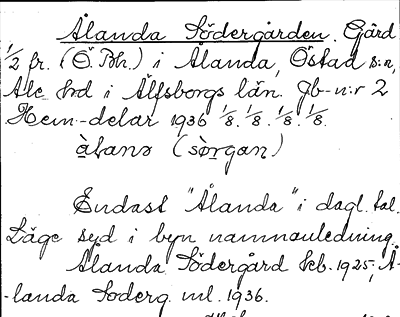 Ålanda Södergården. Gård
1/2 fr. (Ö. Bh.) i Ålanda, Östad s:n,
Ale hd i Älfsborgs län. Jb-n:r 2
Hem-delar 1936 1/8. 1/8. 1/8. 1/8.
àlanə (sòrgan)
Endast "Ålanda" i dagl. tal.
Läge syd i byn namnavledning.
Ålanda Södergård kb. 1925; Å-
-landa Söderg. ml. 1936.